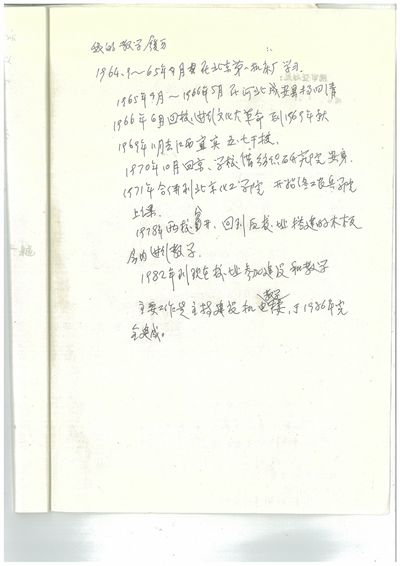 我的教学履历
1964.9～65年8月 在北京第一机床厂学习.
1965年9月～1966年5月在河北成安县搞四清
1966年6月回校 进行文化大革命 到1969年秋
1969年11月去江西宜宾 五七干校.
1970年10月回京、学校借纺织研究院安身.
1971年合併到北京化工学院 开始给工农兵学院
上课.
1978年两校分开, 回到反校址搭建的木板
房内进行教学.
1982年到现在校址参加建设和教学
主要工作是主持建设机电楼, 于1986年完
全建成。